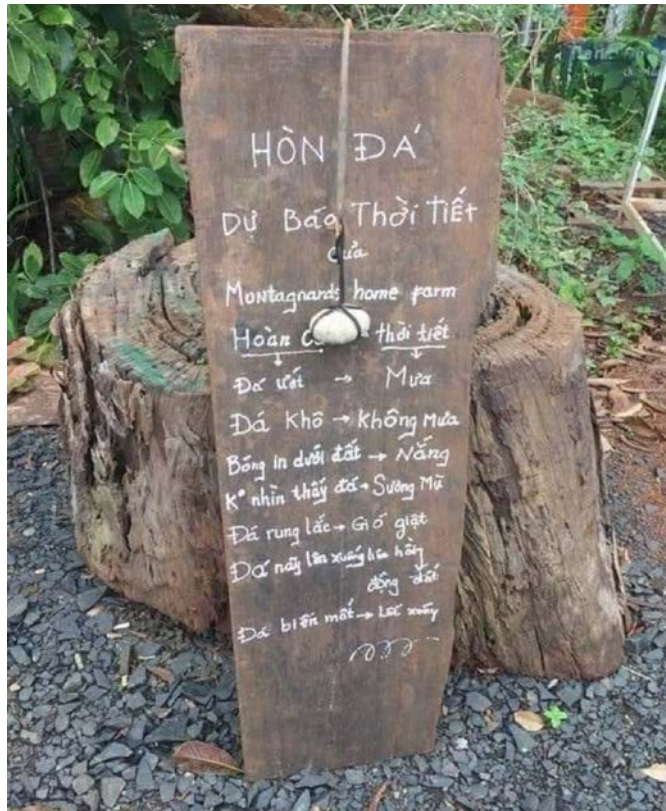 HÒN ĐÁ
Dự Báo Thời Tiết
của
Montagnards home farm
Hoàn thời tiết
Đá ướt → Mưa
Đá Khô → Không Mưa
Bóng in dưới đất → Nắng
K° nhìn thấy đá → Sương Mù
Đá rung lắc → Gió giật
Đá nãy lên xuống liên hồi
động đất
Đá biến mất → Lốc xoáy